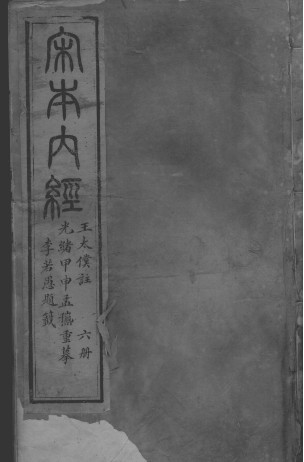 宋本內經
王太僕註 六册
光緒甲申孟秋重摹
李若愚題籤